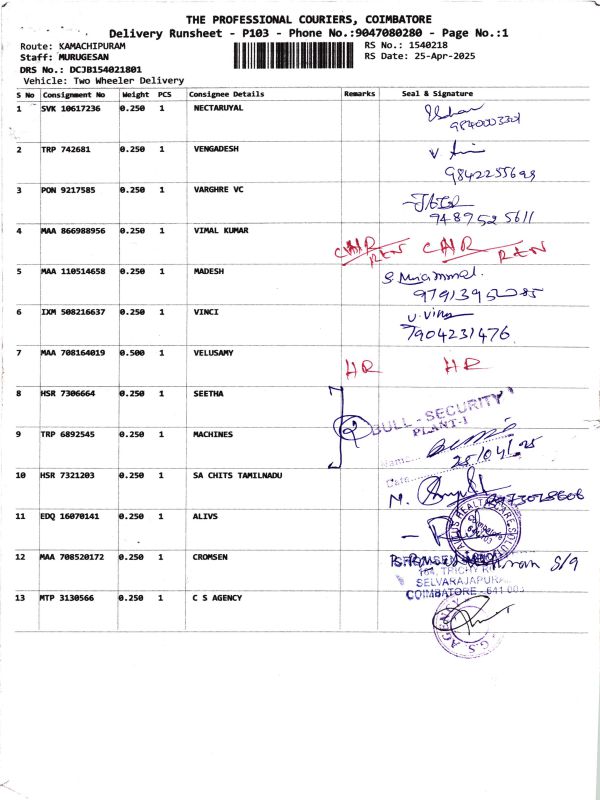 THE PROFESSIONAL COURIERS, COIMBATORE
Delivery Runsheet - P103 - Phone No.:9047080280 - Page No.:1
Route: KAMACHIPURAM RS No.: 1540218
Staff: MURUGESAN RS Date: 25-Apr-2025
DRS No.: DCJB154021801
Vehicle: Two Wheeler Delivery
S No Consignment No Weight PCS Consignee Details Remarks Seal & Signature
1 SVK 10617236 0.250 1 NECTARUYAL
9840003301
2 TRP 742681 0.250 1 VENGADESH
9842255693
3 PON 9217585 0.250 1 VARGHRE VC
9489525611
4 MAA 866988956 0.250 1 VIMAL KUMAR
5 MAA 110514658 0.250 1 MADESH
6 IXM 508216637 0.250 1 VINCI
7904231476
7 MAA 708164019 0.500 1 VELUSAMY
HR HR
8 HSR 7306664 0.250 1 SEETHA
BULL - SECURITY
PLANT-I
9 TRP 6892545 0.250 1 MACHINES
Name
25/04/25
Date
10 HSR 7321203 0.250 1 SA CHITS TAMILNADU
11 EDQ 16070141 0.250 1 ALIVS
12 MAA 708520172 0.250 1 CROMSEN
SELVARAJAPURA
COIMBATORE - 641 003
13 MTP 3130566 0.250 1 C S AGENCY